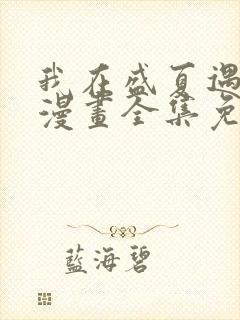 我在盛夏遇
漫畫全集免
藍海碧